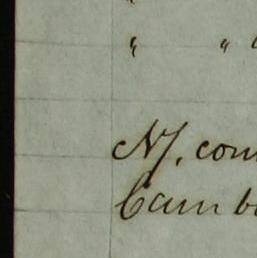 " "
NJ. com
Cam b